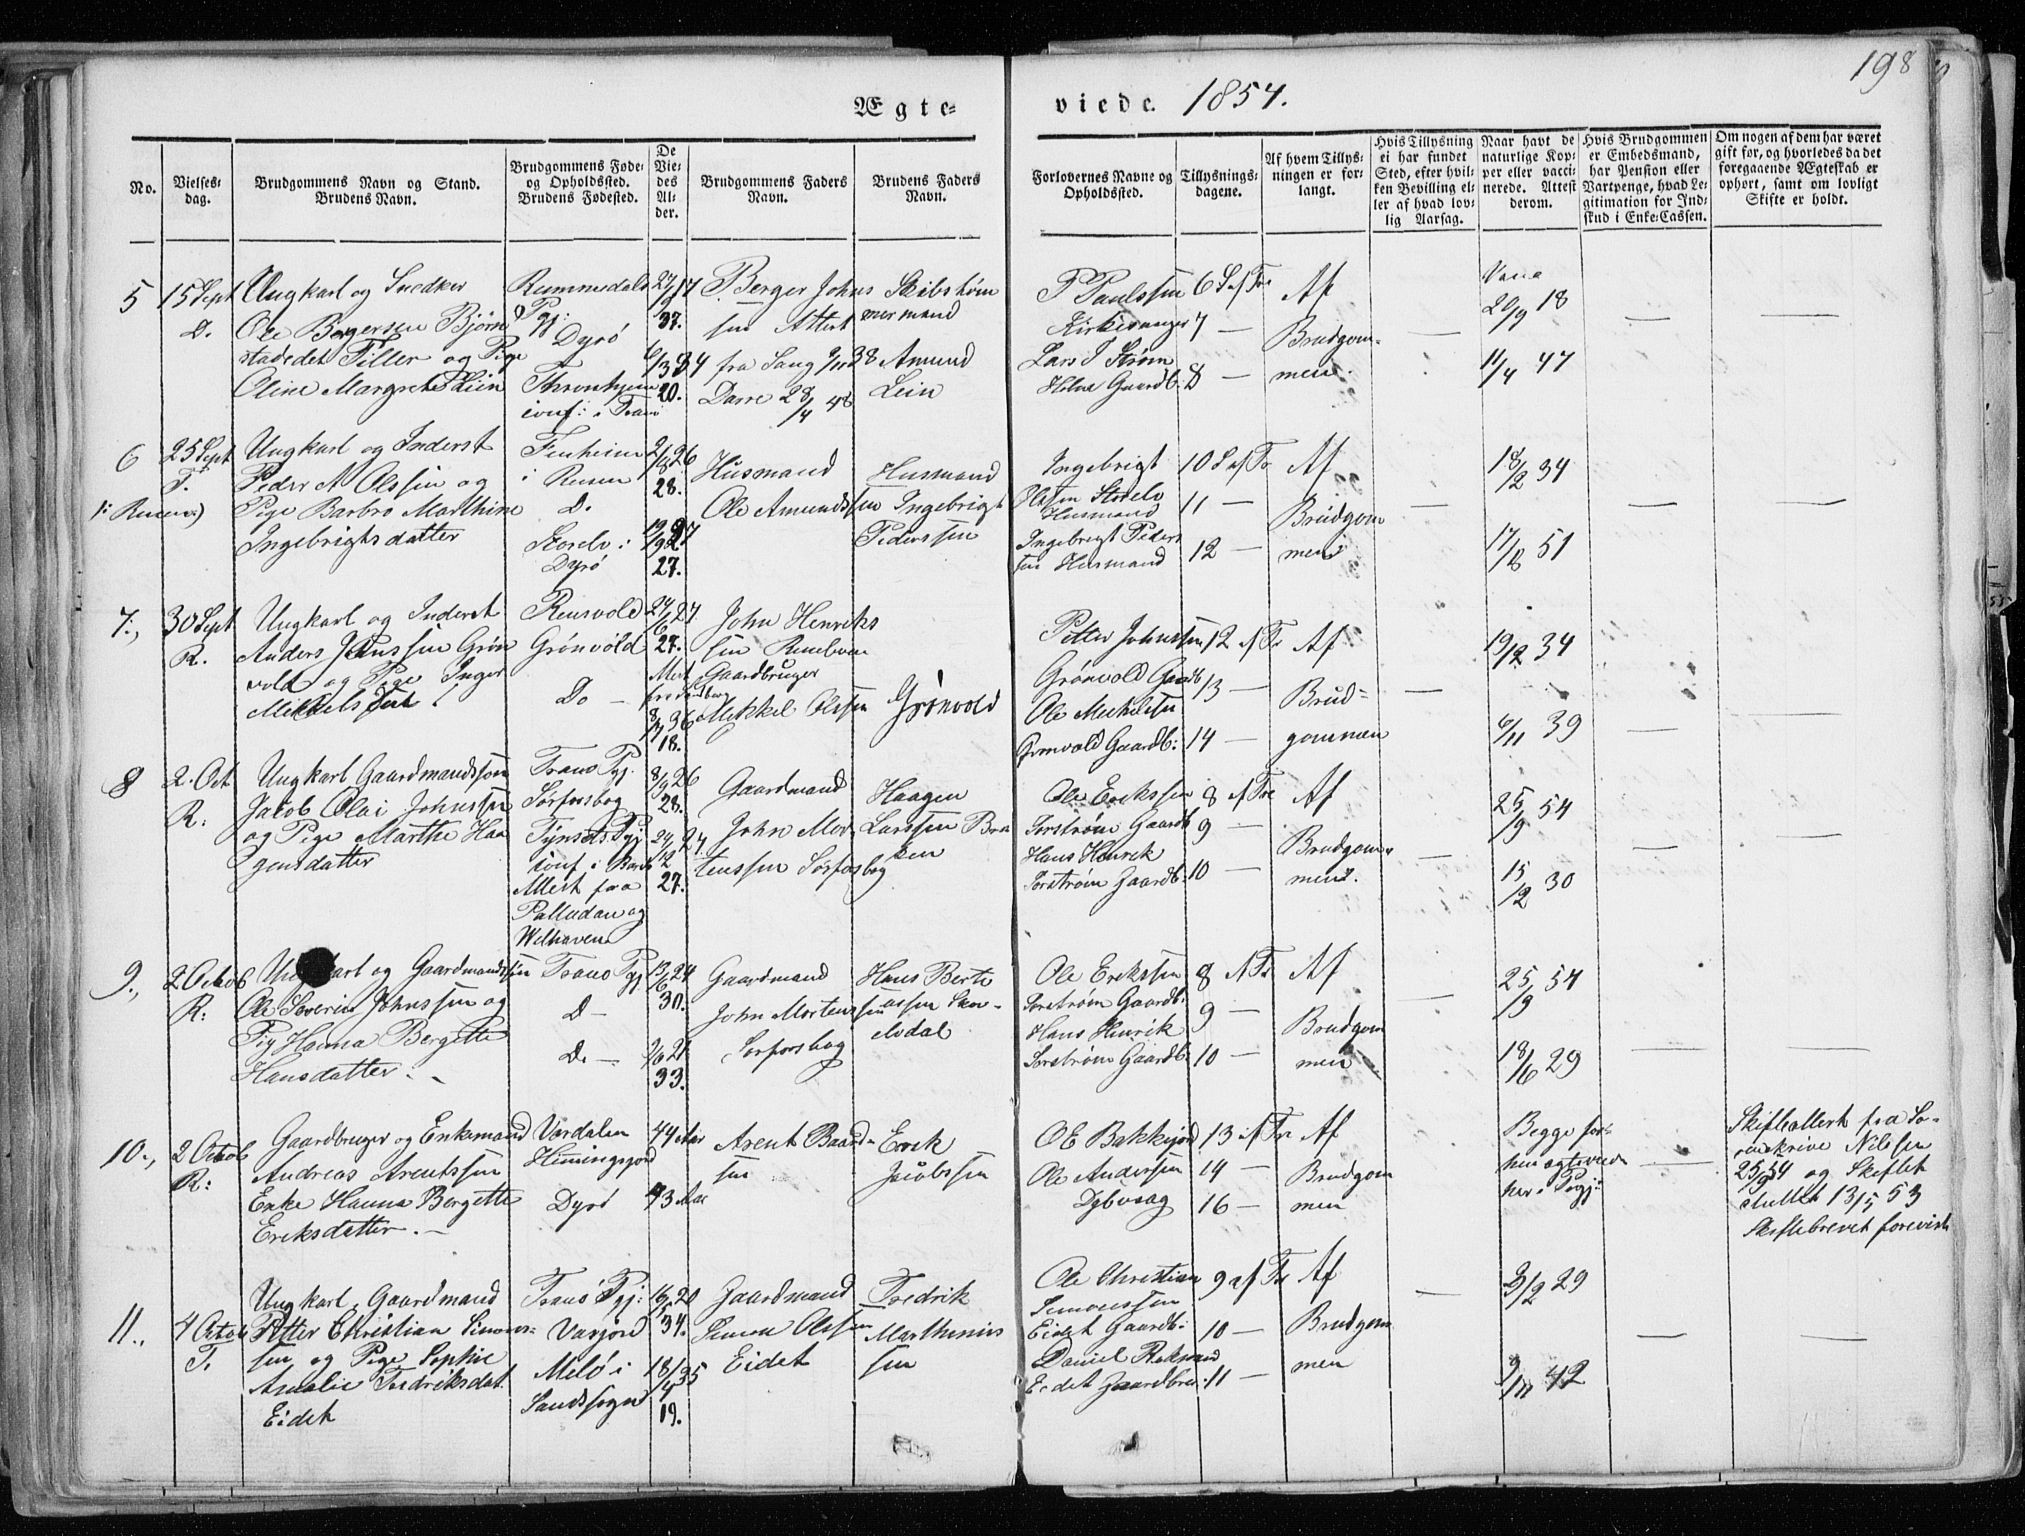 198
Ægte-
viede. 1854.
No.
Vielses-
dag.
Brudgommens Navn og Stand.
Brudens Navn.
Brudgommens Føde-
og Opholdssted.
Brudens Fødested.
De
Vie-
des
Al-
der.
Brudgommens Faders
Navn.
Brudens Faders
Navn.
Forlovernes Navne og
Opholdssted.
Tillysnings-
dagene.
Af hvem Tillys-
ningen er for-
langt.
Hvis Tillysning
ei har fundet
Sted, efter hvil-
ken Bevilling el-
ler af hvad lov-
lig Aarsag.
Naar havt de
naturlige Kop-
per eller vacci-
nerede. Attest
derom.
Hvis Brudgommen
er Embedsmand,
har Pension eller
Vartpenge, hvad Le-
gitimation for Ind-
skud i Enke-Cassen.
Om nogen af dem har været
gift før, og hvorledes da det
foregaaende Ægteskab er
ophørt, samt om lovligt
Skifte er holdt.
5
15 Sept
D.
Ungkarl og Snedker
Ole Bergersen Bjørn
stadedet Tiller og Pige
Oline Margrete Lein
Rummedals
Pgj:
Dyrø
Thronhjem
conf: i Tranø
37.
20.
Berger Johns
sen Attest
fra
Darre 28/4 48
Skibstøm
mermand
Amund
Lein
P Paulssen
Kirkesanger
Lars J Strøm
Gaardb:
6 S af Tr
7 —
8 —
Af
Brudgom-
men.
20/9 18
11/4 47
6
25 Sept
T.
Ungkarl og Inderst
Peder A Olssen og
Pige Barbro Marthine
Ingebrigtsdatter
i
D.
Storelv i
Dyrø
28.
27.
Husmand
Ole Amundssen
Husmand
Ingebrigt
Pederssen
Ingebrigt
Olssen Storelv
Husmand
Ingebrigt Peders
sen Husmand
10 S af Tr
11 —
12 —
Af
Brudgom
men
18/2 34
17/8 51
7.,
30 Sept
R.
Ungkarl og Inderst
Anders Jonssen Grøn
vold og Pige Inger
Mikkelsdat
Rensvold
Grønvold
Do —
24/6 27
27.
18.
John Henriks
sen
Gaardbruger
Mikkel Olssen
Grønvold
Petter Johnssen
Grønvold Gaardb
Ole Mikkelssen
Grønvold Gaardb:
12 af Tr
13 —
14 —
Af
Brud-
gommen
19/2 34
6/11 39
8
2. Oct
R.
Ungkarl Gaardmandssøn
Jakob Olai Johnssen
og Pige Marthe Haa
gensdatter
Tranø Pgj.
Sørforsbog
Tynsets Pgj
conf: i Bardo
Attest fra
Palludan og
Welhaven
8/9 26
28.
27.
Gaardmand
John Mor-
tenssen Sørforsbog
Haagen
Larssen Bra
ken
Ole Erikssen
Sorstrøm Gaardb
Hans Henrik
Sorstrøm Gaardb:
8 af Tr
9 —
10 —
Af
Brudgom-
men.
25/9 54
15/2 30
9.,
2 Octob
R:
Ungkarl og Gaardmandssøn
Ole Severin Johnssen og
Pig Hanna Bergette
Hansdatter. —
Tranø Pgj
D —
D. —
13/6 24
30.
33.
Gaardmand
John Mortenssen
Sørforsbog
Hans Bert
assen
elvdal
Ole Erikssen
Sorstrøm Gaardb:
Hans Henrik
Sorstrøm Gaardb:
8 af Tr
9 —
10 —
Af
Brudgom
men
25/9 54
18/6 29
10.,
2 Octob
R:
Gaardbruger og Enkemand
Andreas Arentssen
Enke Hanna Bergette
Eriksdatter. —
Værdalen
Hemmingsjord
Dyrø
44 Aar
43 Aar
Arent Baard-
sen
Erik
Jacobssen
OE Bakkejord
Ole Anderssen
Dybvaag
13 af Tr
14 —
16 —
Af
Brudgom
men
Begge for-
hen ægteviede
her i Pgj:
Skifteattest fra So-
renskriver Nilssen
25/9 54 og Skiftet
sluttet 13/5 53
Skiftebrevet forevist
11.,
4 Octob
T.
Ungkarl, Gaardmand
Petter Christian Simons-
sen og Pige Sophie
Amalie Fredriksdat.
Eidet
Tranø Pgj:
Varjord
Melø i
Sandssogn
16/5 20
34.
18/4 35
19.
Gaardmand
Simon Olssen
Eidet
Fredrik
Marthinus
sen
Ole Christian
Simonssen
Eidet Gaardb:
Daniel
Eidet Gaardbru:
9 af Tr
10 —
11 —
Af
Brudgom
men
3/2 29
9/11 42